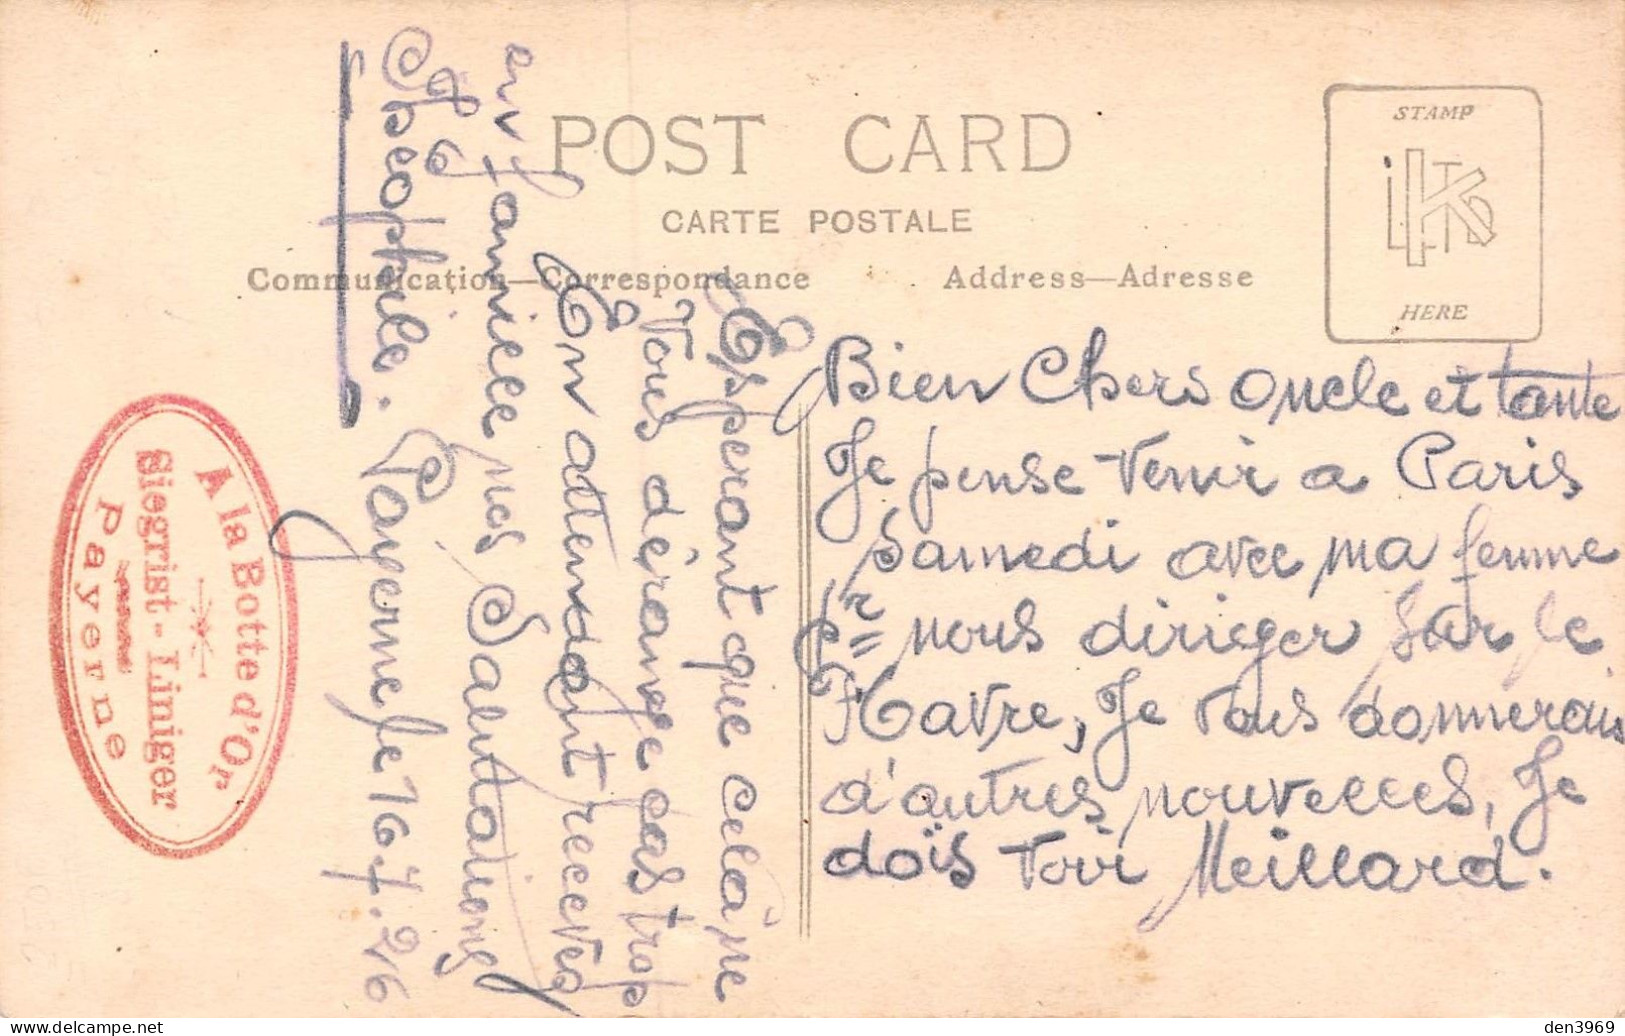 POST CARD
CARTE POSTALE
Communication—Correspondance
Address—Adresse
STAMP
HERE
Bien Chers Oncle et tante
Je pense venir a Paris
Samedi avec ma femme
pr nous dirieger sur le
Havre, Je vous donnerais
d'autres nouvelles, Je
doïs voir Meillard.
Esperant que cela ne
vous dérange pas trop
En attendant recevez
en famille nos Salutations
Theophile. Payerne le 16.7.26
A la Botte d'Or
Siegrist-Liniger
Payerne
den3969